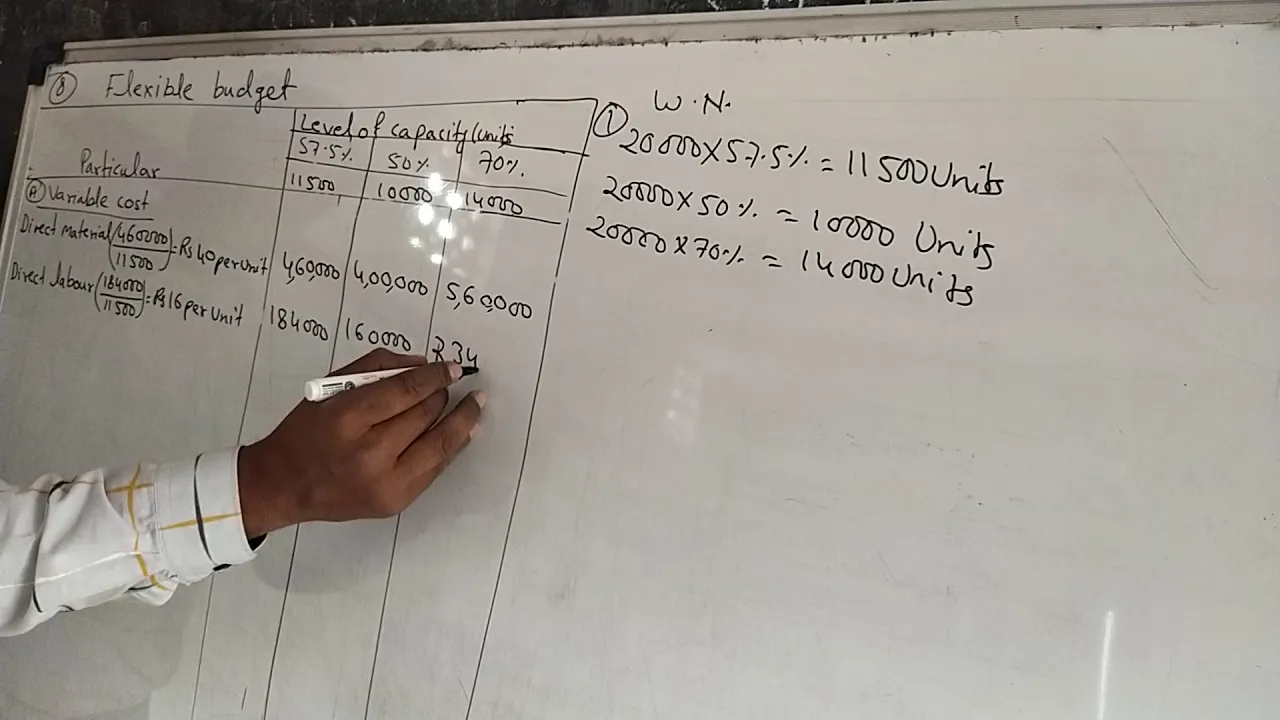 8 Flexible budget
Level of capacity (units
Particular 57.5% 50% 70%.
11500 10000 14000
A Variable cost
Direct material (460000/11500) = Rs 40 per unit 4,60,000 4,00,000 5,60,000
Direct labour (184000/11500) = Rs 16 per unit 184000 160000 234
W.N.
1 20000 X 57.5% = 11500 Units
20000 x 50% = 10000 Units
20000 x 70% = 14000 Units